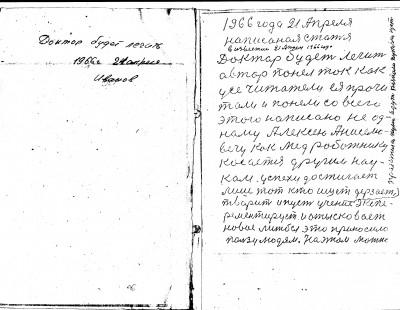 Доктар будет легать
1966г 21 апреля
Иванов
1966 года 21 Апреля
написаная статя
в известия 21 Апреля 1966 году
Доктар будет легит
автор понел ток как
усе читатели ея прочи
тали и понели со всего
этого написано не од-
наму Алексею Анисим-
вечу как мед роботнику
косается другим нау-
кам. успехи достигает
лише тот кто ищет дерзает,
тварит ищет учение Экспе-
рементирует и отысковает
новое лишбы это приносило
ползу людям. На этом можно